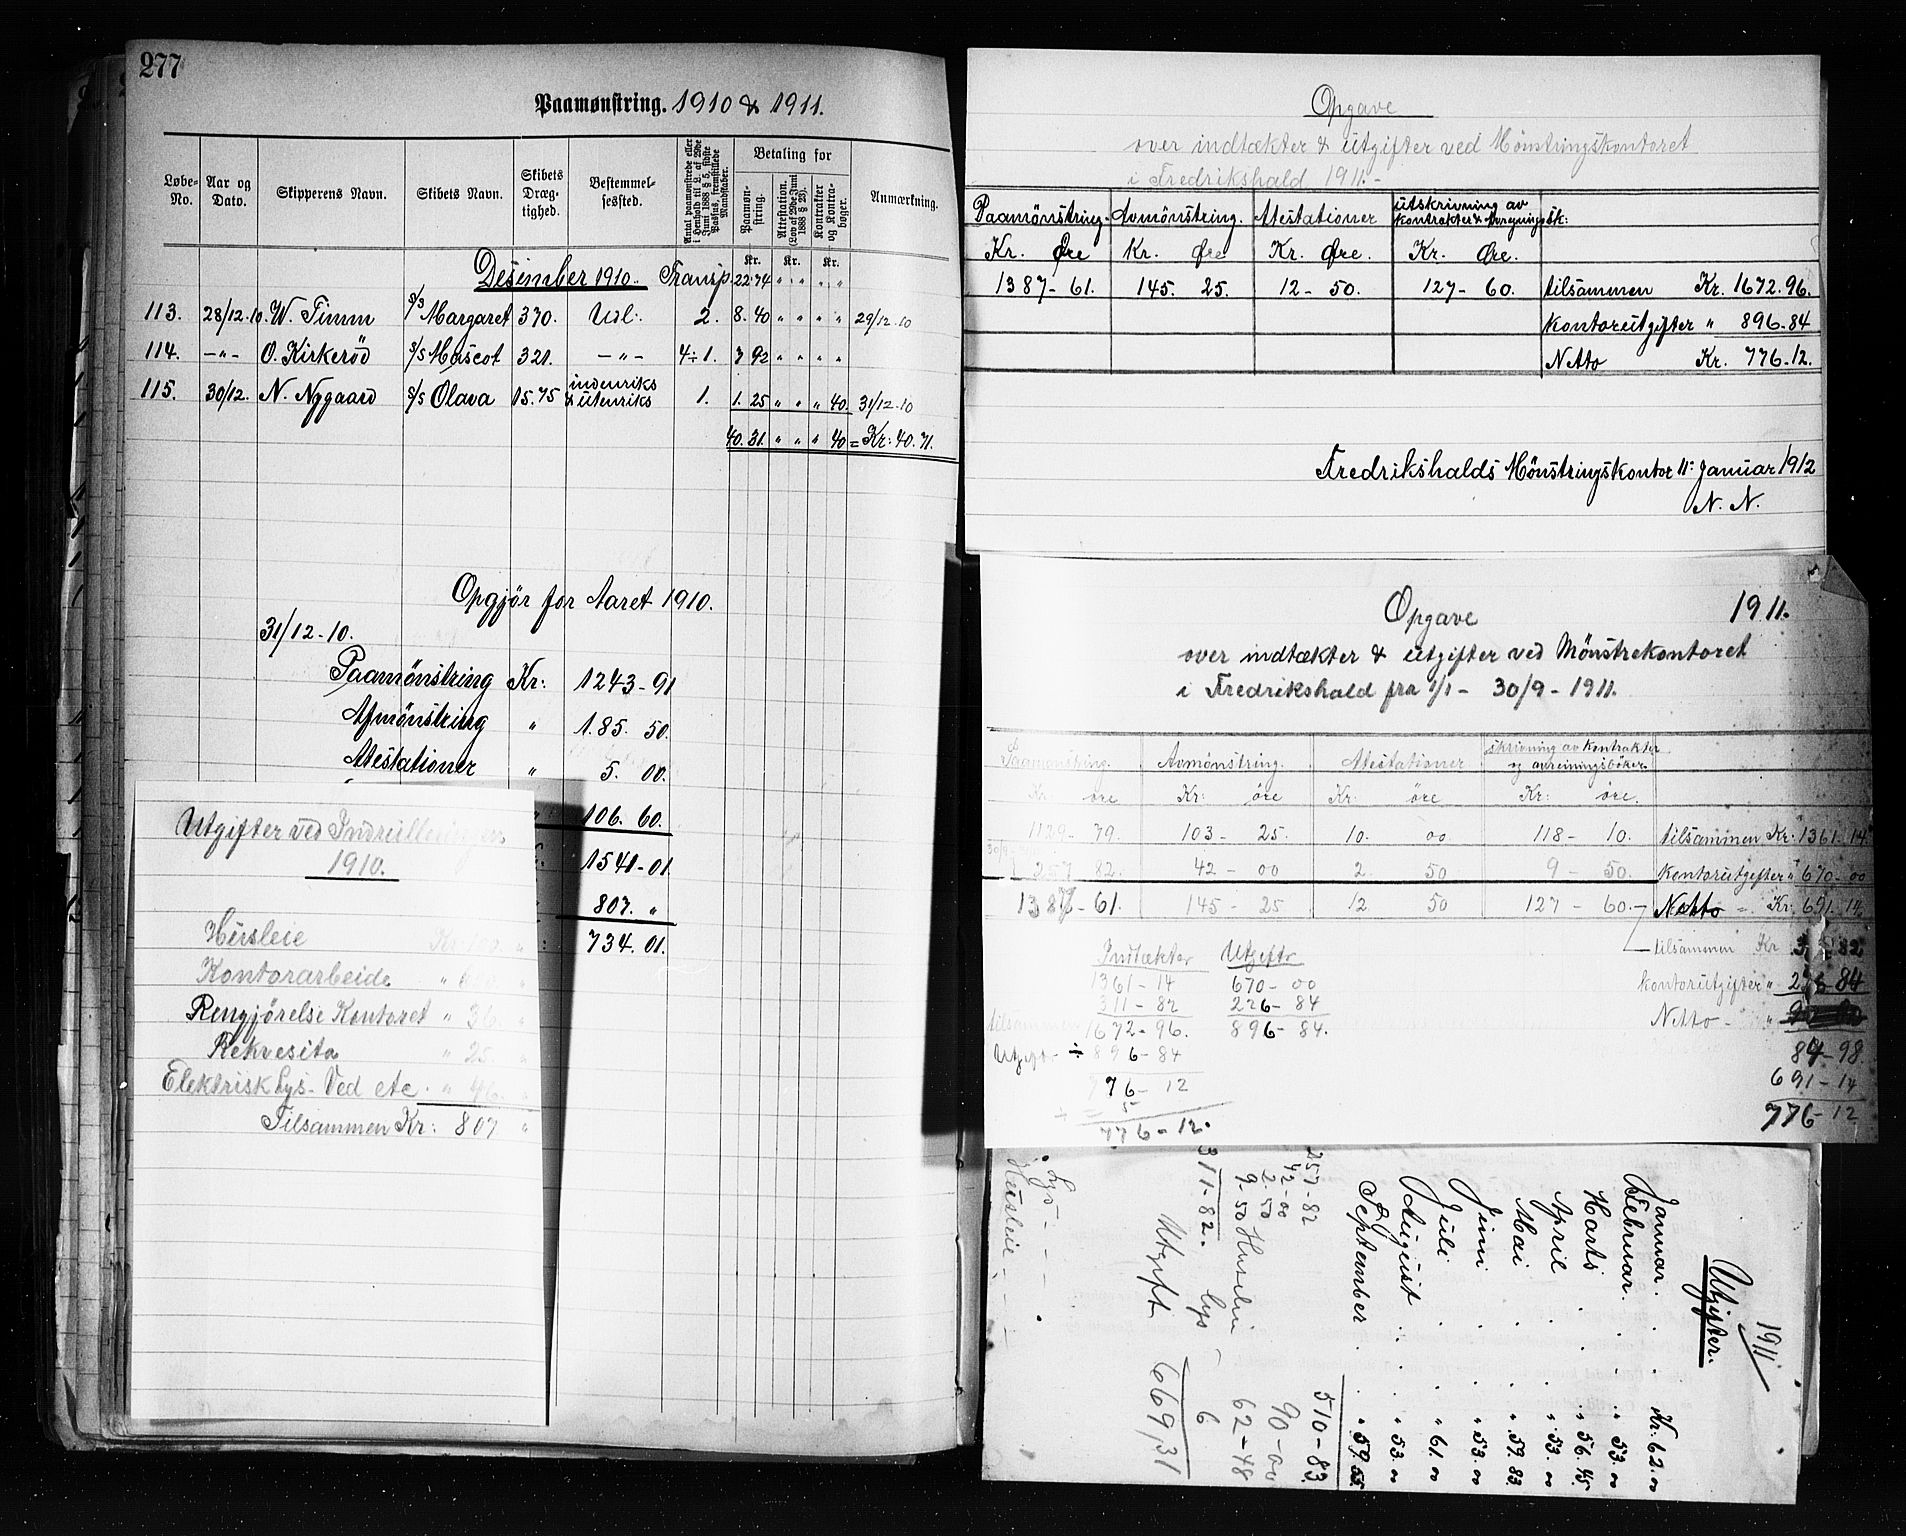 277
Paamønstring. 1910 & 1911.
Løbe-No.
Aar og Dato.
Skipperens Navn.
Skibets Navn.
Skibets Dræg-tighed.
Bestemmel-sessted.
Antal paamønstrede eller i Henhold til L. af 29de Juni 1888 § 5, sidste Passus, fremstillede Mandskaber.
Betaling for
Paamøn-string.
Attestation. (Lov af 29de Juni 1888 § 23).
Kontrakter og Kontra-bøger.
Anmærkning.
Kr. Kr. Kr.
Desember 1910. Transp. 22.74 " " " "
113. 28/12.10. W. Timm S/S Margaret 370. Udl: 2. 8.40 " " " " 29/12.10
114. -"- O. Kirkeröd S/S Mascot 321. -"- 4÷1. 7 92 " " " "
115. 30/12. N. Nygaard S/S Olava 15.75 indenriks & utenriks 1. 1.25 " " " 40. 31/12.10
40.31. " " " 40 = Kr: 40.71.
Opgjör for Aaret 1910.
31/12-10.
Paamönstring Kr: 1243-91
Afmönstring " 185.50.
Atestationer " 5.00.
106.60.
1541-01.
807. "
734.01.
Utgifter ved Indrulleringen
1910.
Husleie Kr.
Kontorarbeide "
Rengjørelse Kontoret " 36. "
Rekvesita " 25. "
Elektrisk Lys- Ved etc. " 46. "
Tilsammen Kr: 807 "
Opgave
over indtækter & utgifter ved Mönstringskontoret
i Fredrikshald 1911.-
Paamönstring. Avmönstring. Atestationer utskrivning av kontrakter &
Kr. Øre Kr. Øre Kr. Øre. Kr. Øre.
1387-61. 145. 25. 12-50. 127-60. tilsammen Kr. 1672.96.
Kontorutgifter " 896-84
Netto Kr. 776-12.
Fredrikshalds Mönstringskontor 11: Januar 1912
N. N.
Opgave 1911.
over indtækter & utgifter ved Mönstrekontoret
i Fredrikshald fra 1/1 - 30/9 - 1911.
Paamönstring. Avmönstring. Atestationer skrivning av kontrakter og avreiningsböker.
Kr. øre Kr: öre Kr: öre Kr: öre.
1129-79. 103-25. 10. 00 118-10. tilsammen Kr: 1361-14
257 82. 42-00 2. 50 9-50. Kontorutgifter " 670-00
1387-61. 145-25 12 50 127-60. Netto - Kr. 691-14
tilsammen Kr
Indtækter Utgiftr
1361-14 670-00
311-82 226-84
tilsammen 1672-96. 896-84.
Utgift ÷ 896-84
776-12
776-12.
kontorutgifter "
Netto - "
84-98.
691-14
776-12
1911
Utgifter.
Januar. Kr. 62.00
Februar. " 53.00
Marts " 56.45
April " 53.00
Mai " 59.83
Juni " 53.00
Juli " 61.00
August " 53.00
September " 59.55
510-83.
90-00
62-48
6
669,31
257-82
42-00
2.50
9-50 Husleie
311-82. Lys
Utgift
Lys -
Husleie